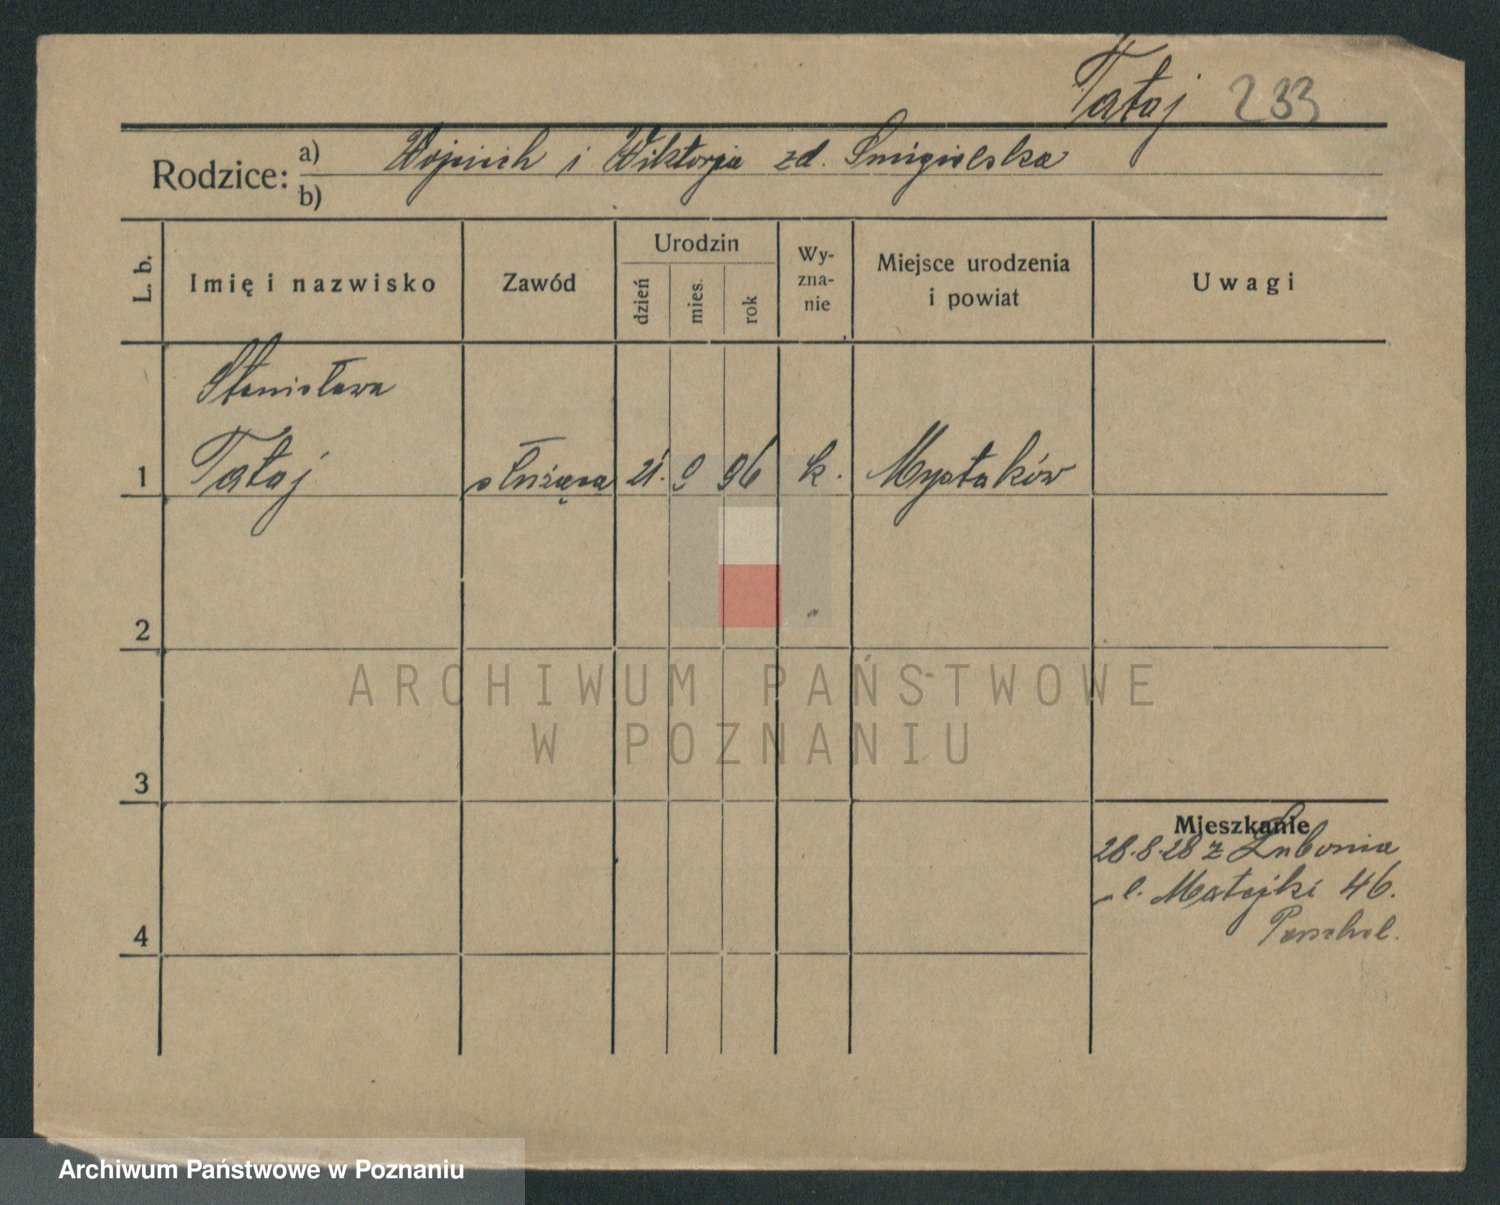 Tataj 233
Rodzice: a) Wojciech i Wiktorja zd. Smigielska
b)
L. b.
Imię i nazwisko
Zawód
Urodzin
dzień
mies.
rok
Wy-
zna-
nie
Miejsce urodzenia
i powiat
Uwagi
Stanisława
1 Tataj służąca 21. 9 96 k. Mystaków
2
3
4
Mieszkanie
28.8.28 z Lubonia
l. Matejki 46.
ARCHIWUM PAŃSTWOWE
W POZNANIU
Archiwum Państwowe w Poznaniu